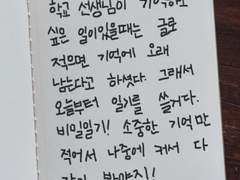 학교 선생님이 기억하고
싶은 일이있을때는 글로
적으면 기억에 오래
남는다고 하셨다. 그래서
오늘부터 일기를 쓸거다.
비밀일기! 소중한 기억만
적어서 나중에 커서 다
같이 봐야지!